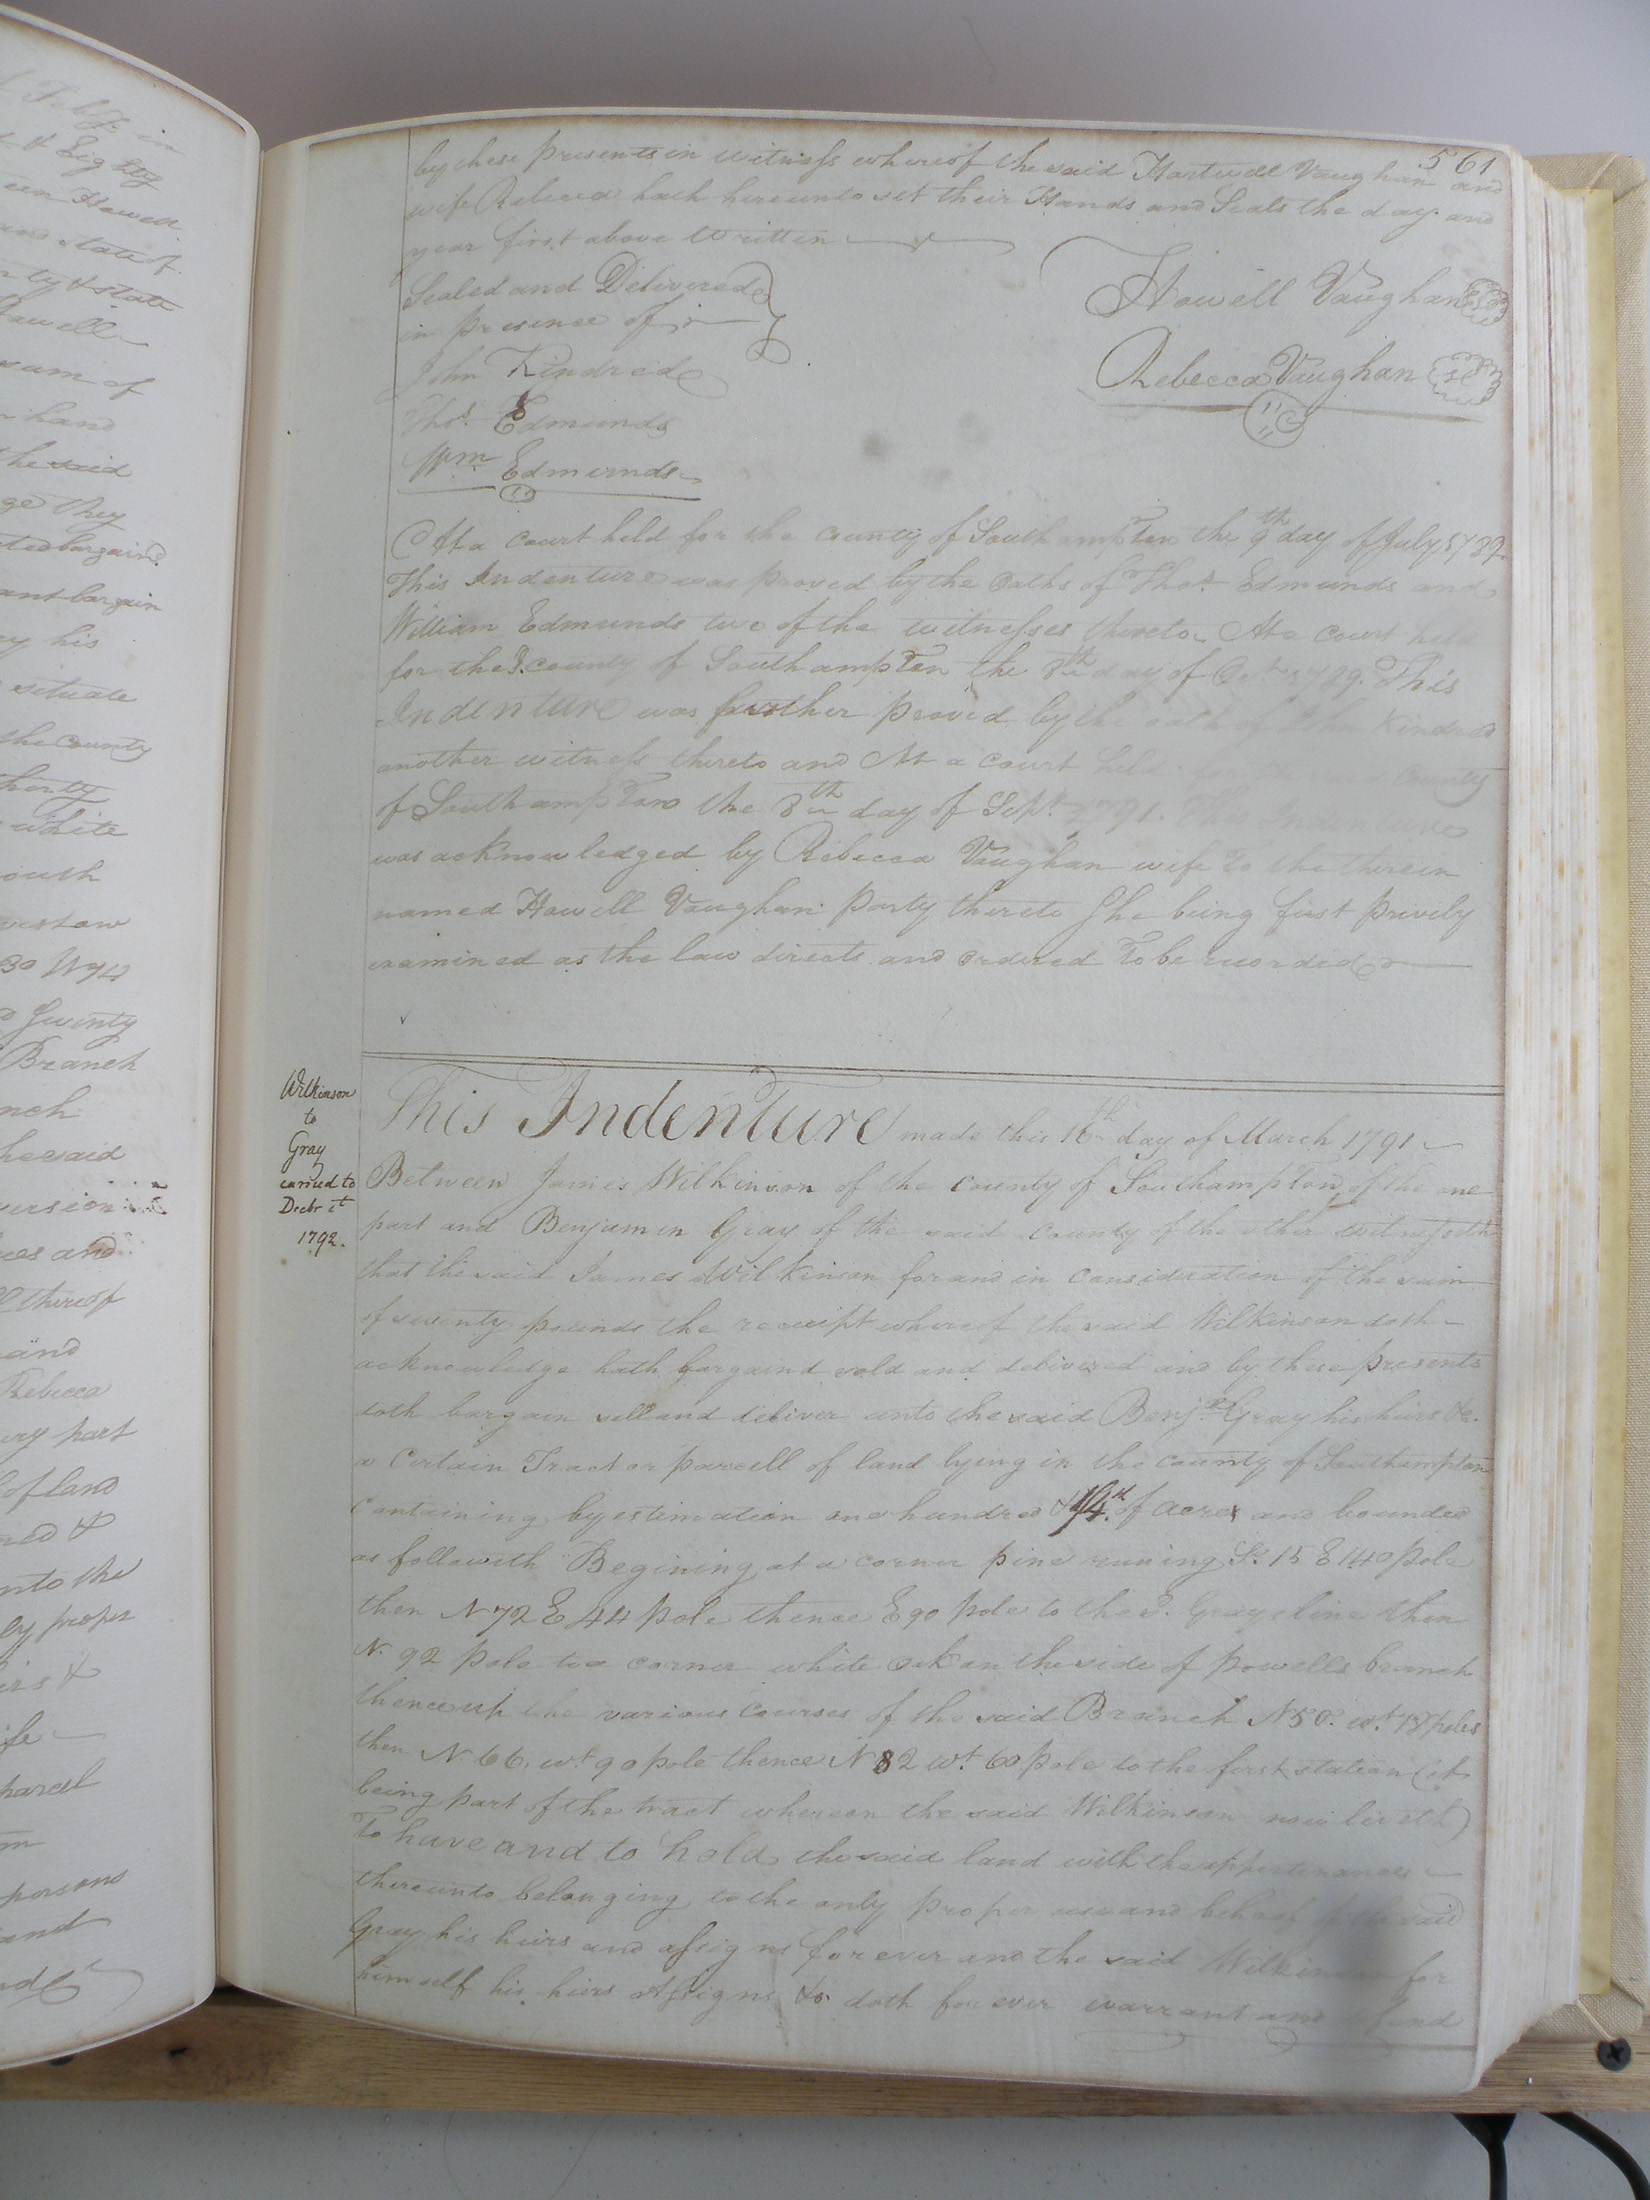 561
by these presents in witness whereof the said Hartwell Vaughan and
wife Rebecca hath hereunto set their Hands and Seals the day and
year first above written
Sealed and Delivered
in presence of
Howell Vaughan
John Kindred
Rebecca Vaughan
Thos. Edmunds
Wm Edmunds
At a court held for the county of Southampton the 9th day of July 1789
This Indenture was proved by the Oaths of Thos. Edmunds and
William Edmunds two of the witnesses thereto. At a court held
for the sd. county of Southampton the 8th day of Octr 1789. This
Indenture was further proved by the oath of John Kindred
another witness thereto and At a court held for the county
of Southampton the 8th day of Sept. 1791. This Indenture
was acknowledged by Rebecca Vaughan wife to the therein
named Howell Vaughan party thereto She being first privily
examined as the law directs and ordered To be recorded
Wilkinson
to
Gray
carried to
Decbr 1st
1792.
This Indenture made this 16th day of March 1791
Between James Wilkinson of the county of Southampton of the one
part and Benjamin Gray of the said county of the other witnesseth
that the said James Wilkinson for and in consideration of the sum
of seventy pounds the receipt whereof the said Wilkinson doth
acknowledge hath bargaind sold and delivered and by these presents
doth bargain sell and deliver unto the said Benjn. Gray his heirs &c.
a Certain Tract or parcell of land lying in the county of Southampton
containing by estimation one hundred & 1/4th of acres and bounded
as followeth Begining at a corner pine runing S. 15 E 140 pole
then N 72 E 44 pole thence E 90 pole to the sd. Grays line then
N. 92 pole to a corner white oak on the side of powells branch
thence up the various courses of the said Branch N 50. wt. 18 poles
then N. 66. wt 90 pole thence N 82 wt. 60 pole to the first station (it
being part of the tract whereon the said Wilkinson now liveth)
To have and to hold the said land with the appertenances
thereunto belonging to the only proper use and behoof of the said
Gray his heirs and assigns for ever and the said Wilkinson for
himself his heirs Assigns &c. doth for ever warrant and defend